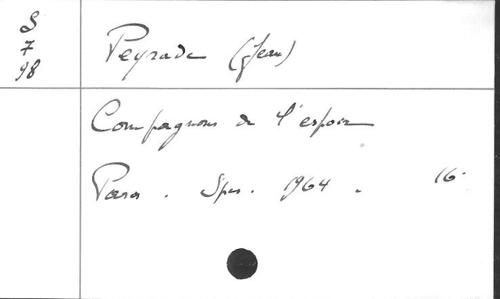 S
7
98
Peyrade (Jean)
Compagnons de l'espoir
Paris. Spes. 1964. 16°